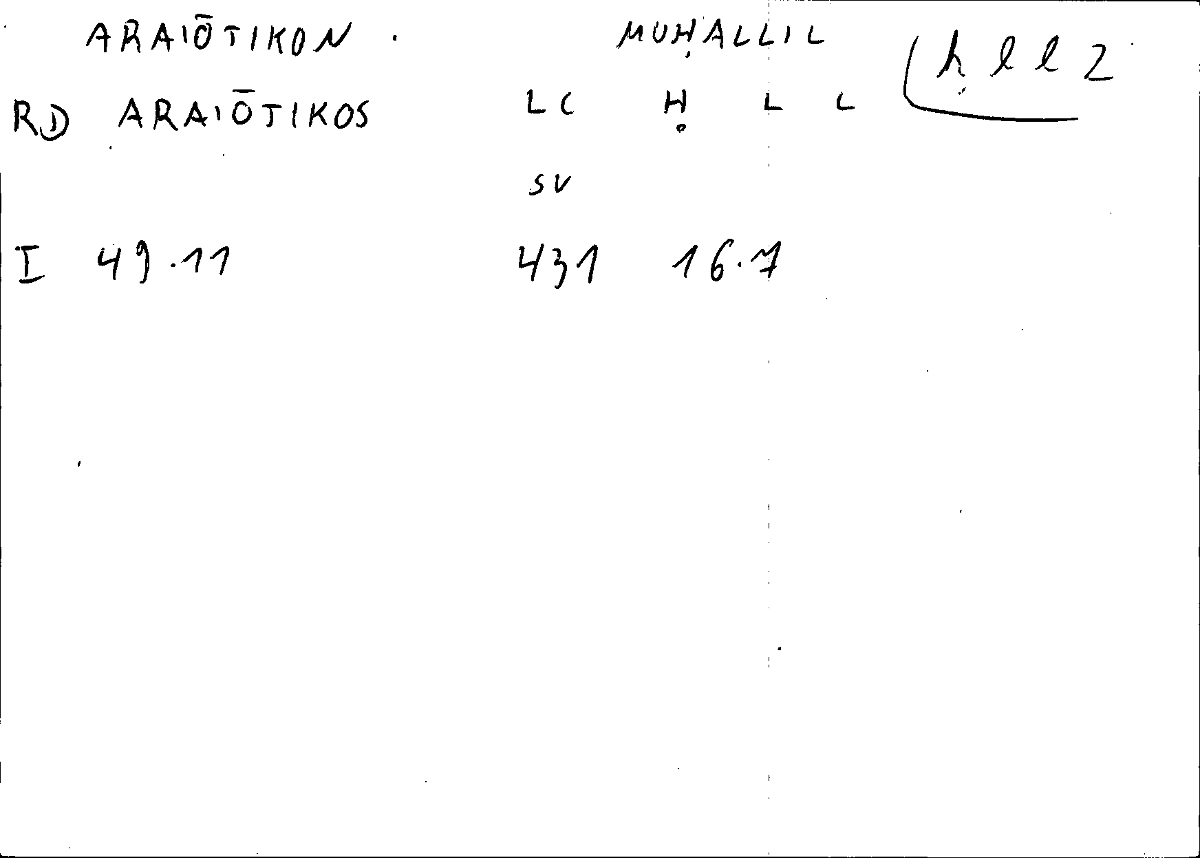 ARAIŌTIKON . MUḤALLIL ḥll2
RD ARAIŌTIKOS LC Ḥ L L
SV
I 49.11 431 16.7